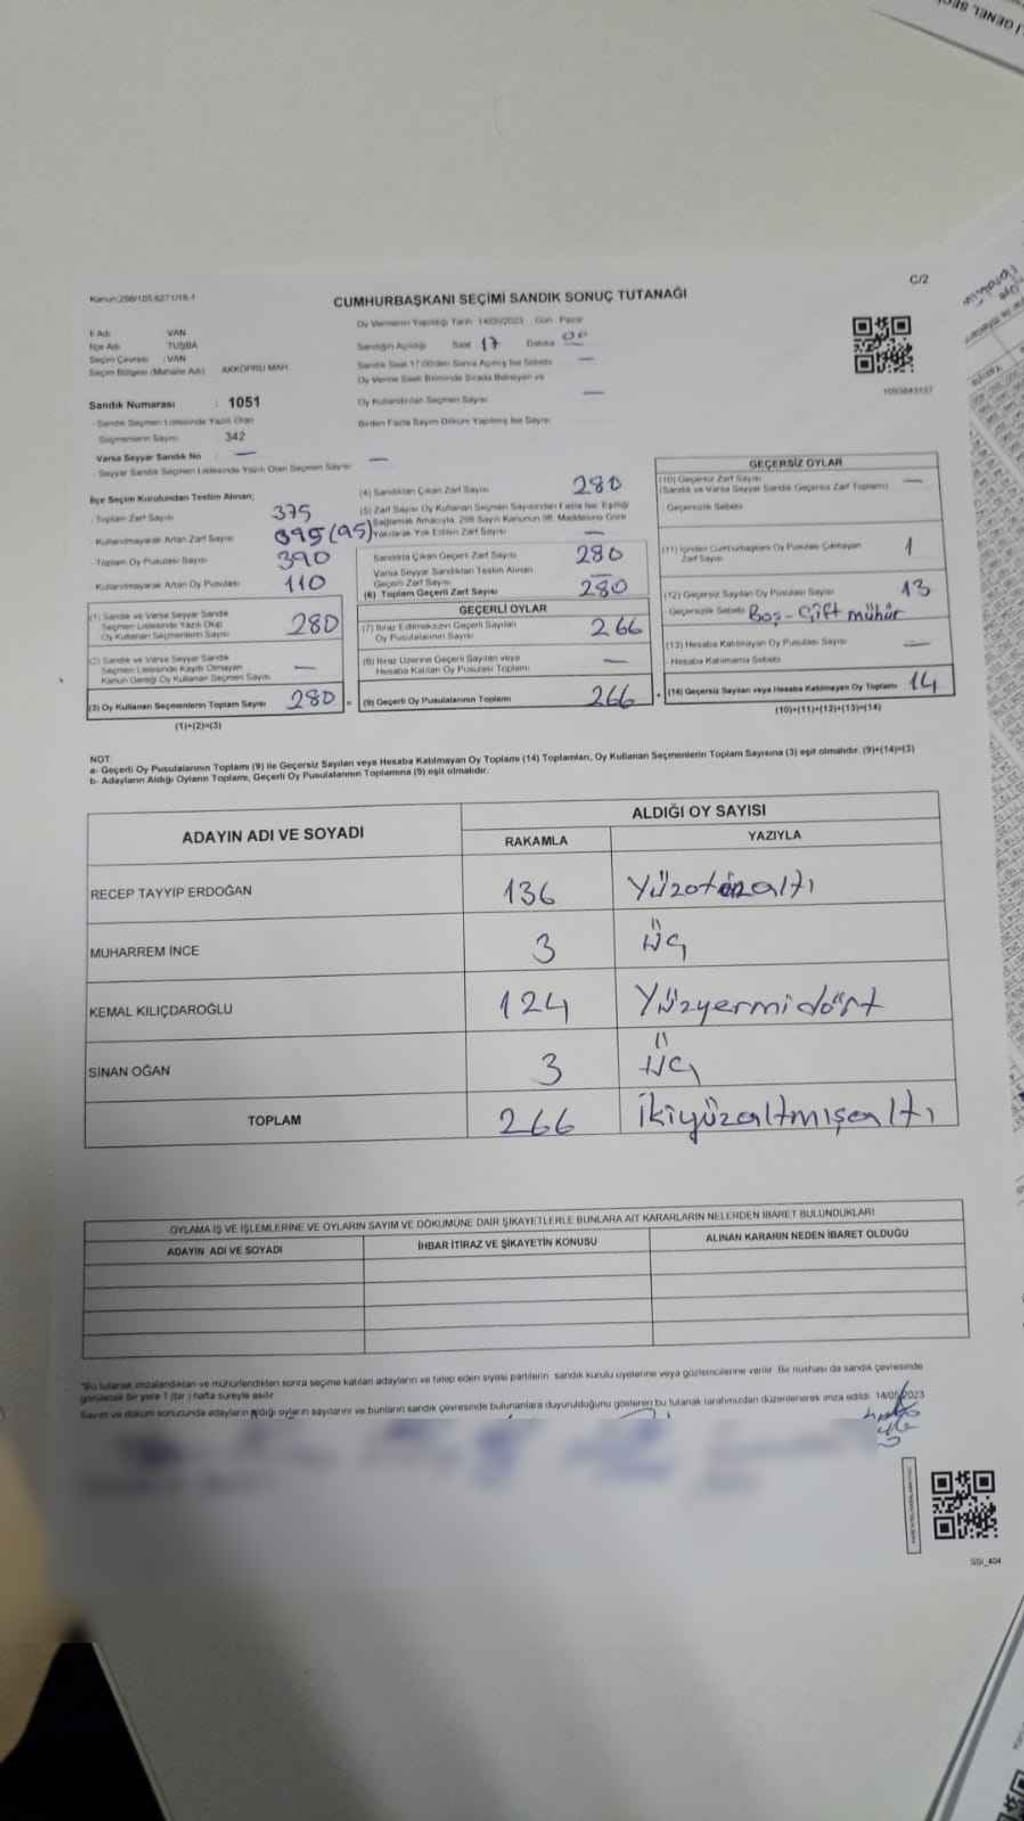 C/2
CUMHURBAŞKANI SEÇİMİ SANDIK SONUÇ TUTANAĞI
Kanun:298/105.6271/18-1
İl Adı : VAN
İlçe Adı : TUŞBA
Seçim Çevresi : VAN
Seçim Bölgesi (Mahalle Adı) : AKKÖPRÜ MAH.
Sandık Numarası : 1051
Sandık Seçmen Listesinde Yazılı Olan
Seçmenlerin Sayısı 342
Varsa Seyyar Sandık No —
Seyyar Sandık Seçmen Listesinde Yazılı Olan Seçmen Sayısı —
Oy Vermenin Yapıldığı Tarih: 14/05/2023 Gün: Pazar
Sandığın Açıldığı Saat 17 Dakika 00
Sandık Saat 17:00'den Sonra Açılmış İse Sebebi —
Oy Verme Saati Bitiminde Sırada Bekleyen ve
Oy Kullandırılan Seçmen Sayısı —
Birden Fazla Sayım Döküm Yapılmış İse Sayısı
İlçe Seçim Kurulundan Teslim Alınan;
Toplam Zarf Sayısı 375
Kullanılmayarak Artan Zarf Sayısı 395 (95)
Toplam Oy Pusulası Sayısı 390
Kullanılmayarak Artan Oy Pusulası 110
(1) Sandık ve Varsa Seyyar Sandık
Seçmen Listesinde Yazılı Olup
Oy Kullanan Seçmenlerin Sayısı 280
(2) Sandık ve Varsa Seyyar Sandık
Seçmen Listesinde Kayıtlı Olmayan
Kanun Gereği Oy Kullanan Seçmen Sayısı —
(3) Oy Kullanan Seçmenlerin Toplam Sayısı 280
(1)+(2)=(3)
(4) Sandıktan Çıkan Zarf Sayısı 280
(5) Zarf Sayısı Oy Kullanan Seçmen Sayısından Fazla İse, Eşitliği
Sağlamak Amacıyla, 298 Sayılı Kanunun 98. Maddesine Göre
Yakılarak Yok Edilen Zarf Sayısı —
Sandıkta Çıkan Geçerli Zarf Sayısı 280
Varsa Seyyar Sandıktan Teslim Alınan
Geçerli Zarf Sayısı —
(6) Toplam Geçerli Zarf Sayısı 280
GEÇERLİ OYLAR
(7) İtiraz Edilmeksizin Geçerli Sayılan
Oy Pusulalarının Sayısı 266
(8) İtiraz Üzerine Geçerli Sayılan veya
Hesaba Katılan Oy Pusulası Toplamı —
(9) Geçerli Oy Pusulalarının Toplamı 266
GEÇERSİZ OYLAR
(10) Geçersiz Zarf Sayısı —
(Sandık ve Varsa Seyyar Sandık Geçersiz Zarf Toplamı)
Geçersizlik Sebebi
(11) İçinden Cumhurbaşkanı Oy Pusulası Çıkmayan
Zarf Sayısı 1
(12) Geçersiz Sayılan Oy Pusulası Sayısı 13
Geçersizlik Sebebi Boş - Çift mühür
(13) Hesaba Katılmayan Oy Pusulası Sayısı —
Hesaba Katılmama Sebebi
(14) Geçersiz Sayılan veya Hesaba Katılmayan Oy Toplamı 14
(10)+(11)+(12)+(13)=(14)
NOT
a- Geçerli Oy Pusulalarının Toplamı (9) ile Geçersiz Sayılan veya Hesaba Katılmayan Oy Toplamı (14) Toplamları, Oy Kullanan Seçmenlerin Toplam Sayısına (3) eşit olmalıdır. (9)+(14)=(3)
b- Adayların Aldığı Oyların Toplamı, Geçerli Oy Pusulalarının Toplamına (9) eşit olmalıdır.
ADAYIN ADI VE SOYADI
ALDIĞI OY SAYISI
RAKAMLA YAZIYLA
RECEP TAYYİP ERDOĞAN 136 Yüzotuzaltı
MUHARREM İNCE 3 üç
KEMAL KILIÇDAROĞLU 124 Yüzyermidört
SİNAN OĞAN 3 üç
TOPLAM 266 İkiyüzaltmışaltı
OYLAMA İŞ VE İŞLEMLERİNE VE OYLARIN SAYIM VE DÖKÜMÜNE DAİR ŞİKAYETLERLE BUNLARA AİT KARARLARIN NELERDEN İBARET BULUNDUKLARI
ADAYIN ADI VE SOYADI
İHBAR İTİRAZ VE ŞİKAYETİN KONUSU
ALINAN KARARIN NEDEN İBARET OLDUĞU
*Bu tutanak imzalandıktan ve mühürlendikten sonra seçime katılan adayların ve talep eden siyasi partilerin sandık kurulu üyelerine veya gözlemcilerine verilir. Bir nüshası da sandık çevresinde
görülecek bir yere 1 (bir) hafta süreyle asılır.
Sayım ve döküm sonucunda adayların aldığı oyların sayılarını ve bunların sandık çevresinde bulunanlara duyurulduğunu gösteren bu tutanak tarafımızdan düzenlenerek imza edildi. 14/05/2023
SSI_404